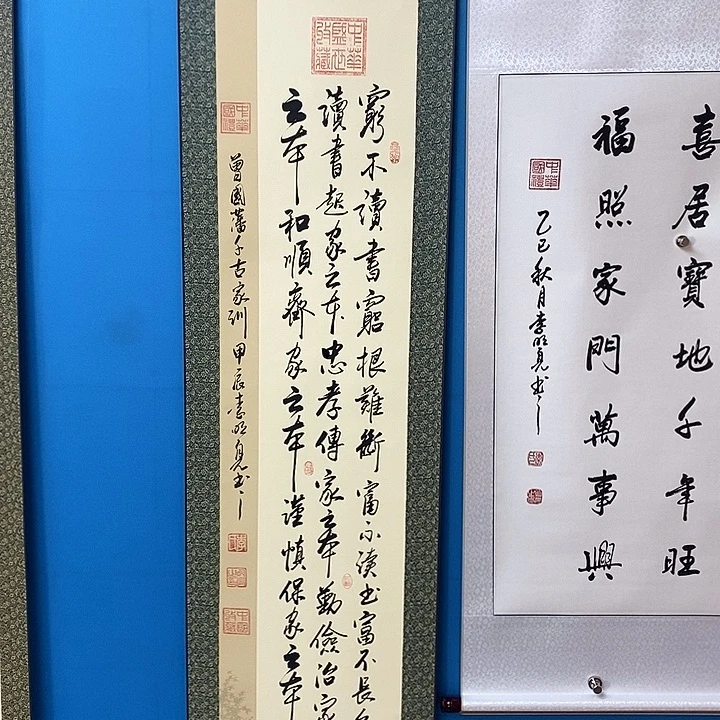 喜居寶地千年旺
福照家門萬事興
中華國禮
乙巳秋月李明书
中華盛世收藏
窮不讀書窮根難斷富不读书富不長
讀書起家之本忠孝傳家之本勤儉治家
之本和順齊家之本謹慎保家之本
中華國禮
曾國藩千古家训 甲辰李明书